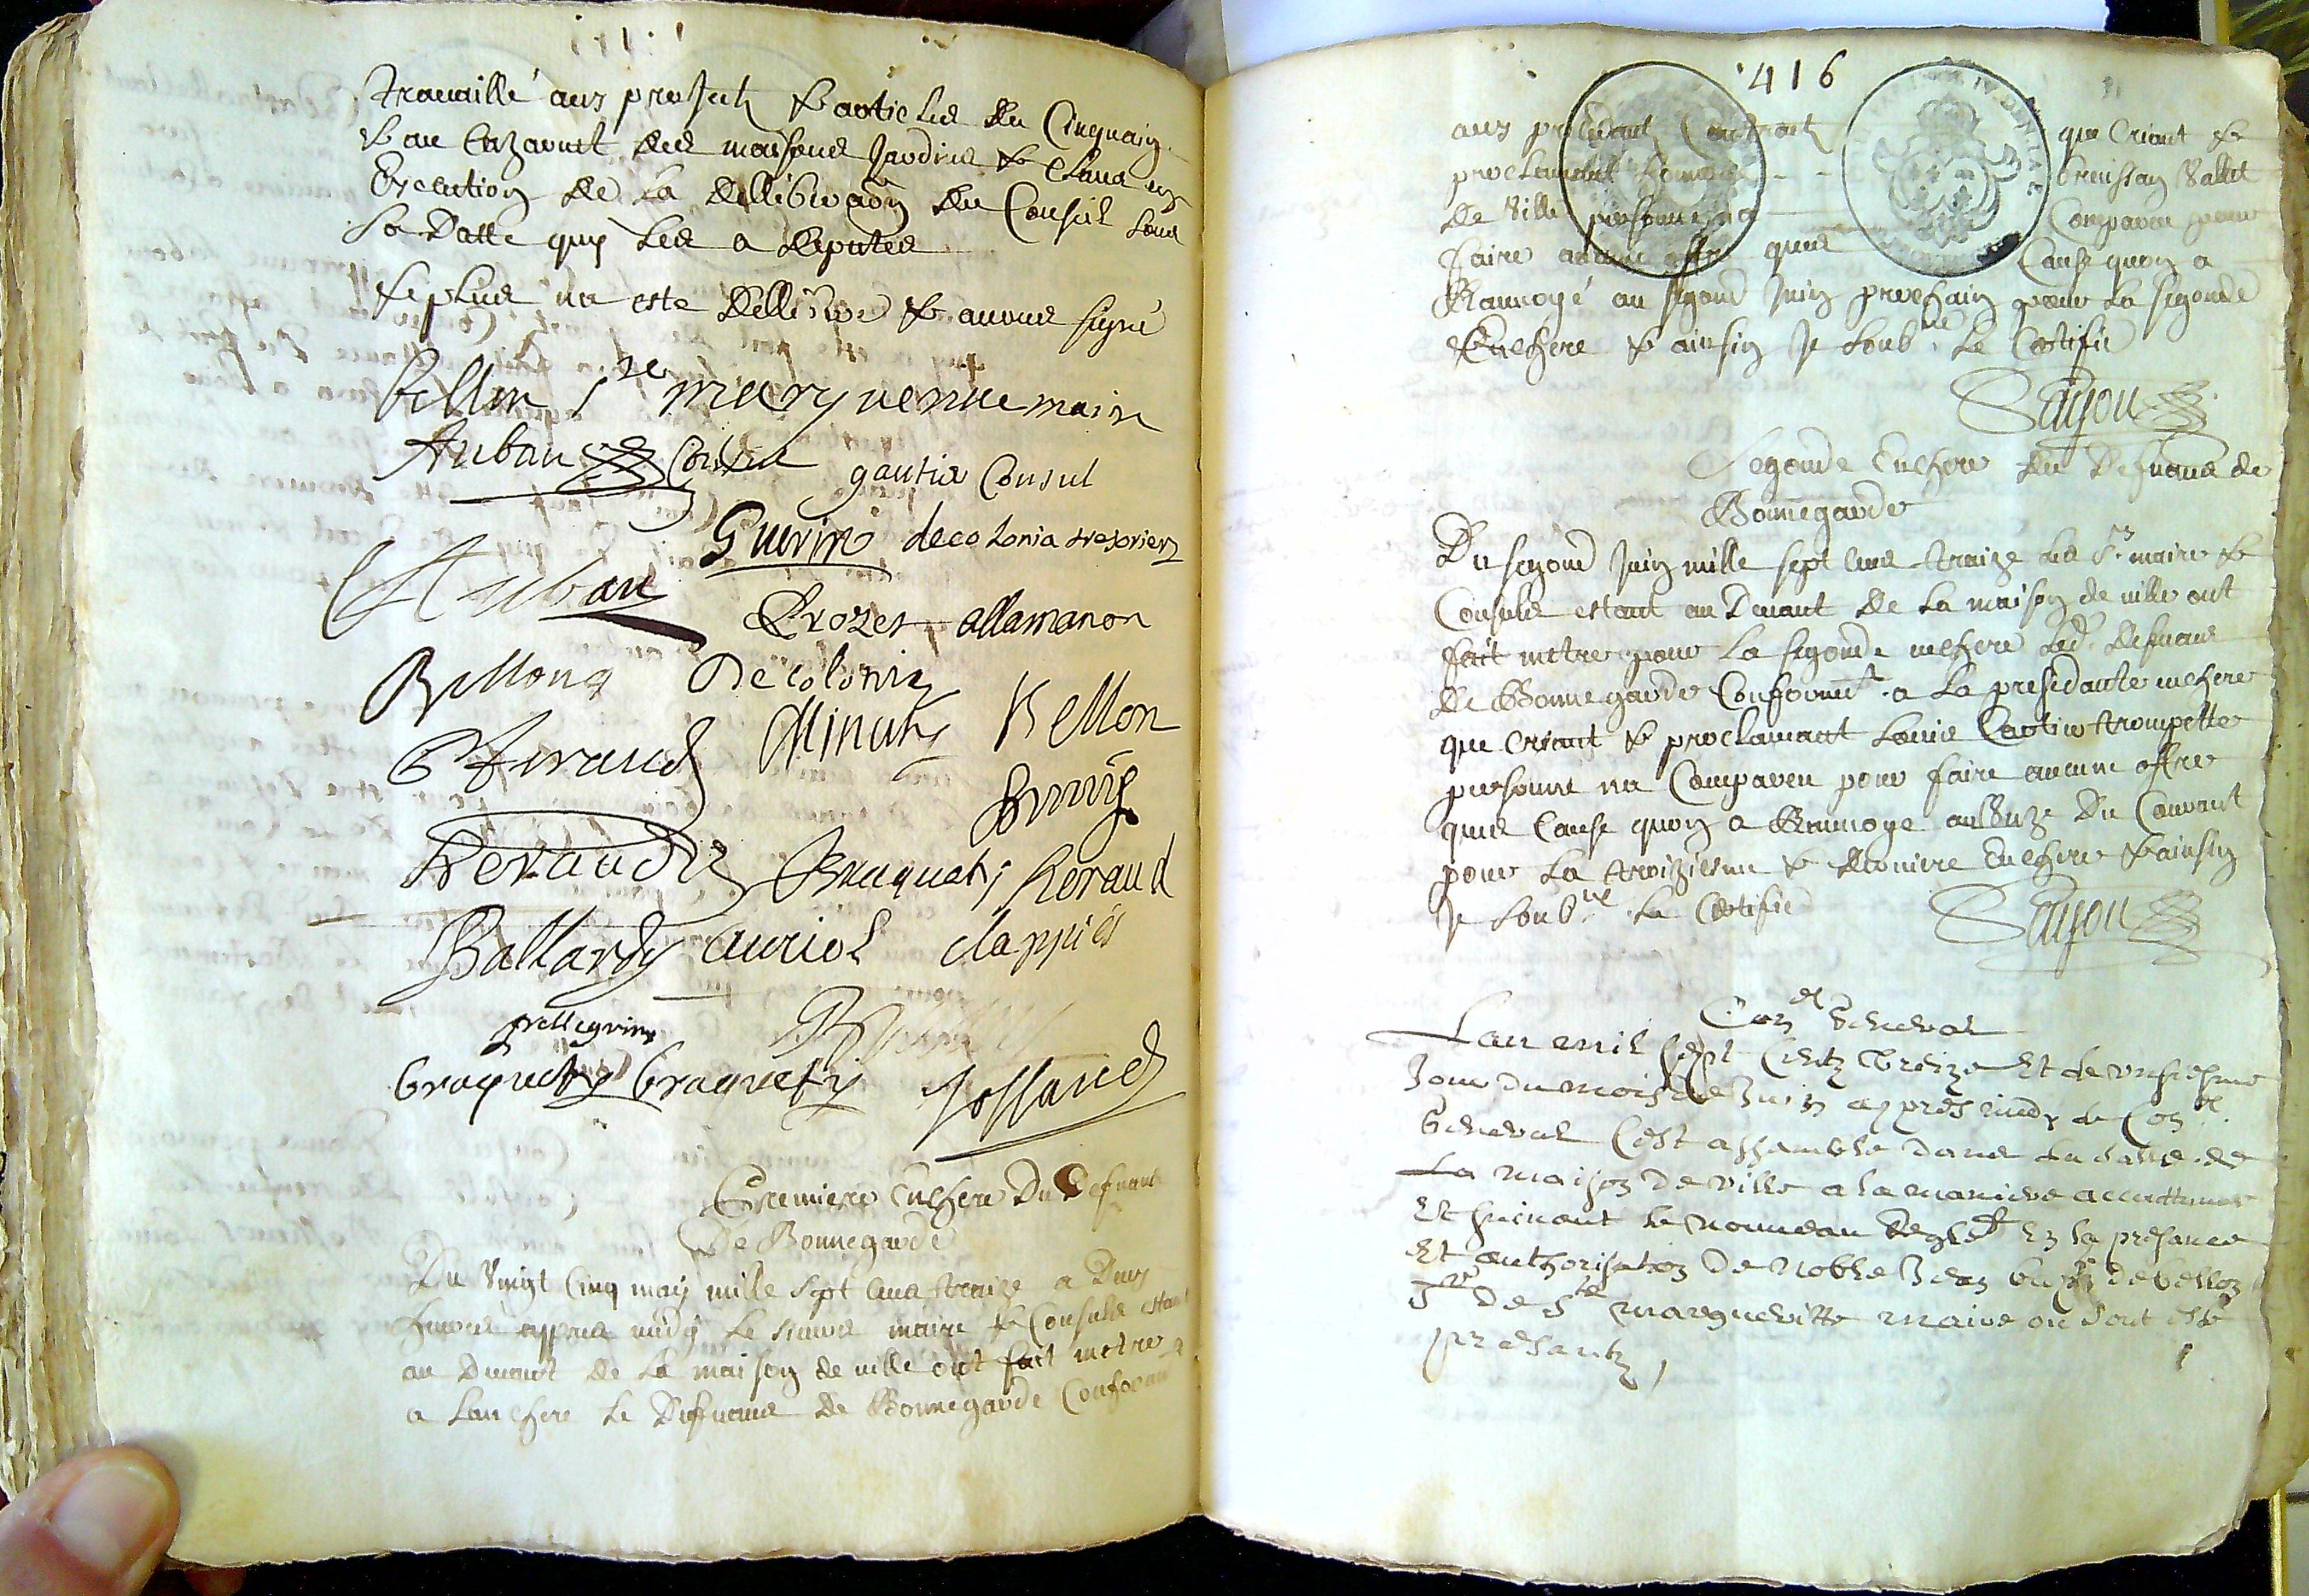 travaillé aux projects & articles du Cinquain
& au Cazavent des maisons Jardins & Clana en
Execution de la dellibera'on du Conseil sous
sa Datte quy les a deputes
& plus na este delliberé & avons signé
Bellon Ste margueritte maire
Auban Consul gautier Consul
Guerin decolonia tresorier
Auban
Crozet allamanon
Billong Decolonia
G feraud Minuty Bellon
Bouuys
Reraud Braquety Reraud
Ballardy auriol clappiés
pellegrin
braquety braquety Jossaud
Premiere Enchere Du Defuans
De Bonnegarde
Du Vingt Cinq may mille sept cens traize a Deux
heures appres midy le sieurs maire & Consuls estant
au Duuant de la maison de ville ont fait mettre
a lanchere le Defuans de Bonnegarde Conform
416
aux precedants Contraits que Criant &
proclamant brussan Vallet
de Ville personne na Comparu pour
faire aucune offre ques Cause quon a
Ranuoyé au segond Juin prochain pour la segonde
Enchere & ainsin Je soubné le Certifie
Saison
Segonde Enchere du Defuans de
Bonnegarde
Du segond Juin mille sept cens traize les Srs maire &
Consuls estant au Duuant de la maison de ville ont
fait metre pour la segonde enchere led. defuans
de Bonnegarde Conformt a la presedante enchere
que Criant & proclamant Louis Cartier trompette
personne na Compareu pour faire aucune offre
ques Cause quon a Ranuoye au Unze du Courant
pour la troizieme & derniere Enchere & ainsin
Je soubné le Certifie
Saison
Conel general
Lan mil sept Centz treize Et le unsiesme
Jour du mois de Juin appres midy le Conel
general sest assamblé dans la salle de
La maison de ville a la maniere accuttumee
Et suivant le nouveau Reglet En la presance
Et authorisation de Noble Jean de bellon
Sr de Ste margueritte maire ou sont esté
presantz